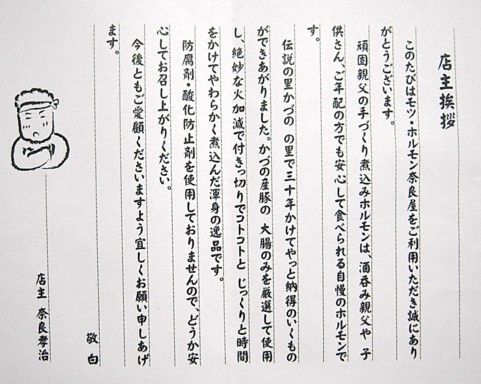 店主挨拶
このたびはモツ・ホルモン奈良屋をご利用いただき誠にあり
がとうございます。
頑固親父の手づくり煮込みホルモンは、酒呑み親父や 子
供さん、ご年配の方でも安心して食べられる自慢のホルモンで
す。
伝説の里かづの の里で三十年かけてやっと納得のいくもの
ができあがりました。かづの産豚の 大腸のみを厳選して使用
し、絶妙な火加減で付きっ切りでコトコトと じっくりと時間
をかけてやわらかく煮込んだ渾身の逸品です。
防腐剤・酸化防止剤を使用しておりませんので、どうか安
心してお召し上がりください。
今後ともご愛顧くださいますよう宜しくお願い申しあげ
ます。
敬白
店主 奈良孝治